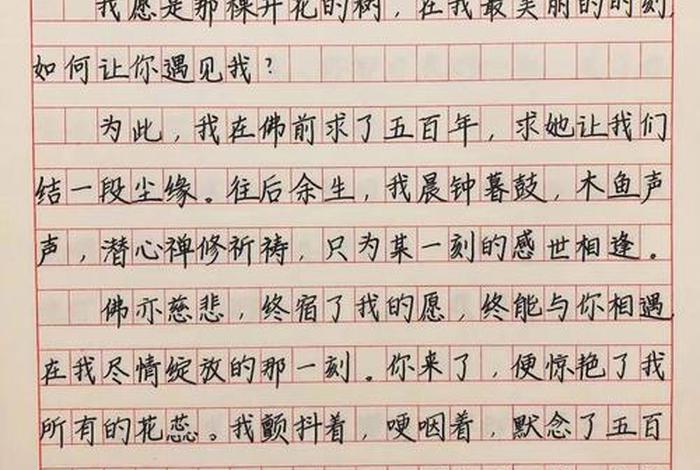 我愿是那棵开花的树，在我最美丽的时刻，
如何让你遇见我？
为此，我在佛前求了五百年，求她让我们
结一段尘缘。往后余生，我晨钟暮鼓，木鱼声
声，潜心禅修祈祷，只为某一刻的感世相逢。
佛亦慈悲，终宿了我的愿，终能与你相遇
在我尽情绽放的那一刻。你来了，便惊艳了我
所有的花蕊。我颤抖着，哽咽着，默念了五百